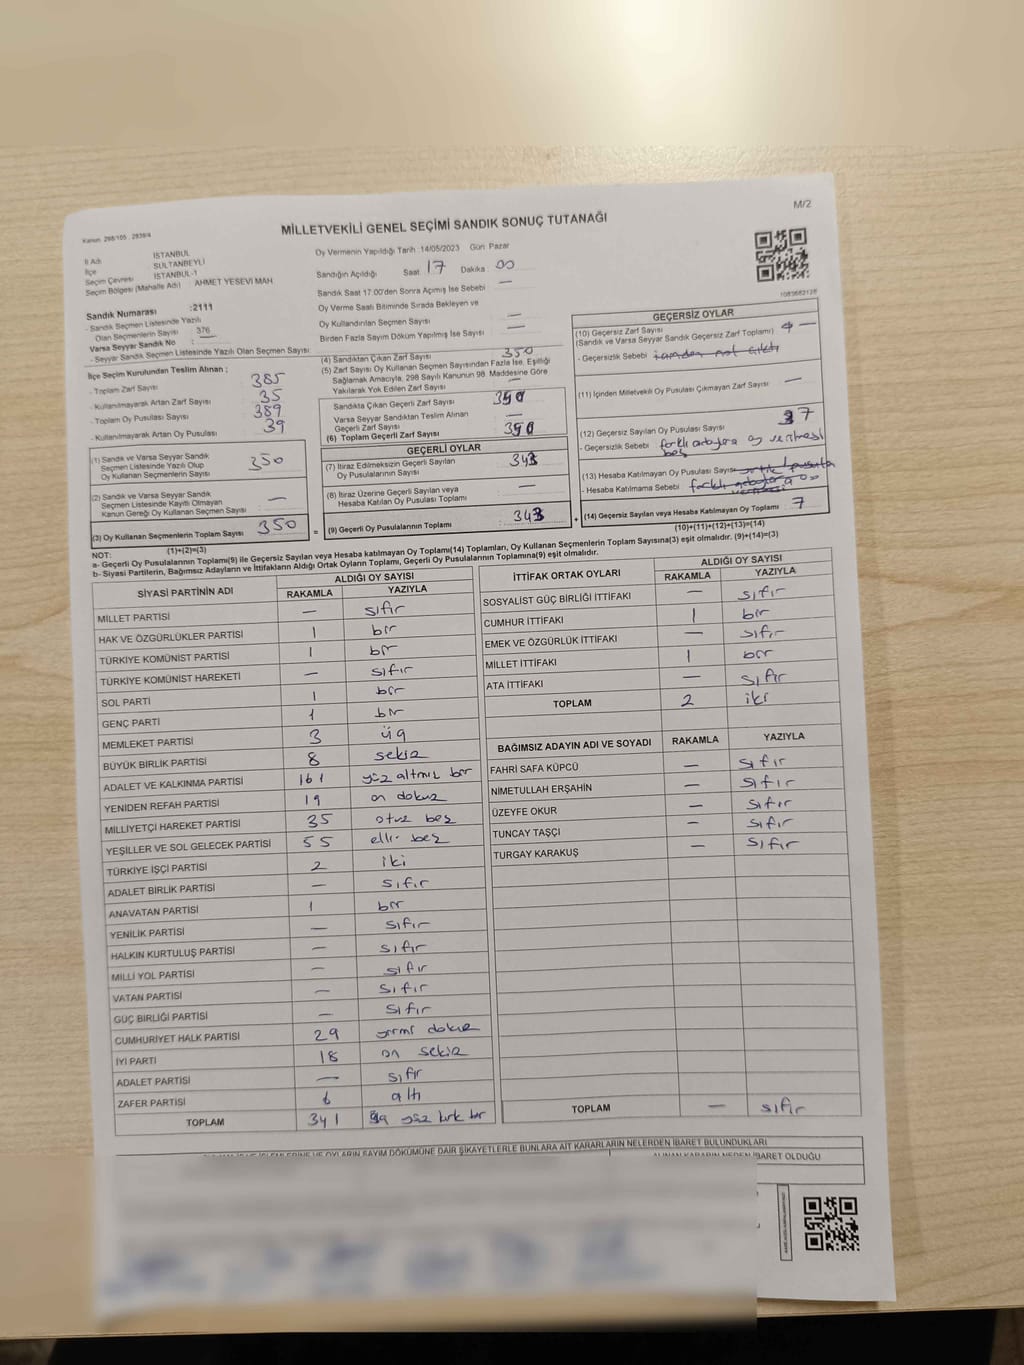 M/2
Kanun: 298/105 , 2839/4
MİLLETVEKİLİ GENEL SEÇİMİ SANDIK SONUÇ TUTANAĞI
İl Adı : İSTANBUL
İlçe : SULTANBEYLİ
Seçim Çevresi : İSTANBUL-1
Seçim Bölgesi (Mahalle Adı) : AHMET YESEVİ MAH
Sandık Numarası :2111
- Sandık Seçmen Listesinde Yazılı
Olan Seçmenlerin Sayısı : 376
Varsa Seyyar Sandık No :
- Seyyar Sandık Seçmen Listesinde Yazılı Olan Seçmen Sayısı:
İlçe Seçim Kurulundan Teslim Alınan ;
- Toplam Zarf Sayısı 385
- Kullanılmayarak Artan Zarf Sayısı 35
- Toplam Oy Pusulası Sayısı 389
- Kullanılmayarak Artan Oy Pusulası 39
(1) Sandık ve Varsa Seyyar Sandık
Seçmen Listesinde Yazılı Olup
Oy Kullanan Seçmenlerin Sayısı : 350
(2) Sandık ve Varsa Seyyar Sandık
Seçmen Listesinde Kayıtlı Olmayan
Kanun Gereği Oy Kullanan Seçmen Sayısı : —
(3) Oy Kullanan Seçmenlerin Toplam Sayısı : 350
(1)+(2)=(3)
Oy Vermenin Yapıldığı Tarih :14/05/2023 Gün: Pazar
Sandığın Açıldığı Saat : 17 Dakika : 00
Sandık Saat 17:00'den Sonra Açımış İse Sebebi : —
Oy Verme Saati Bitiminde Sırada Bekleyen ve
Oy Kullandırılan Seçmen Sayısı : —
Birden Fazla Sayım Döküm Yapılmış İse Sayısı : —
(4) Sandıktan Çıkan Zarf Sayısı : 350
(5) Zarf Sayısı Oy Kullanan Seçmen Sayısından Fazla İse, Eşitliği
Sağlamak Amacıyla, 298 Sayılı Kanunun 98. Maddesine Göre
Yakılarak Yok Edilen Zarf Sayısı : —
Sandıkta Çıkan Geçerli Zarf Sayısı : 350
Varsa Seyyar Sandıktan Teslim Alınan
Geçerli Zarf Sayısı : —
(6) Toplam Geçerli Zarf Sayısı : 350
GEÇERLİ OYLAR
(7) İtiraz Edilmeksizin Geçerli Sayılan
Oy Pusulalarının Sayısı : 343
(8) İtiraz Üzerine Geçerli Sayılan veya
Hesaba Katılan Oy Pusulası Toplamı : —
= (9) Geçerli Oy Pusulalarının Toplamı : 343
1089682128
GEÇERSİZ OYLAR
(10) Geçersiz Zarf Sayısı
(Sandık ve Varsa Seyyar Sandık Geçersiz Zarf Toplamı) : —
- Geçersizlik Sebebi :
(11) İçinden Milletvekili Oy Pusulası Çıkmayan Zarf Sayısı : —
(12) Geçersiz Sayılan Oy Pusulası Sayısı : 7
- Geçersizlik Sebebi : farklı adaylara oy verilmesi
boş
(13) Hesaba Katılmayan Oy Pusulası Sayısı
- Hesaba Katılmama Sebebi :
+ (14) Geçersiz Sayılan veya Hesaba Katılmayan Oy Toplamı : 7
(10)+(11)+(12)+(13)=(14)
NOT:
a- Geçerli Oy Pusulalarının Toplamı(9) ile Geçersiz Sayılan veya Hesaba katılmayan Oy Toplamı(14) Toplamları, Oy Kullanan Seçmenlerin Toplam Sayısına(3) eşit olmalıdır. (9)+(14)=(3)
b- Siyasi Partilerin, Bağımsız Adayların ve İttifakların Aldığı Ortak Oyların Toplamı, Geçerli Oy Pusulalarının Toplamına(9) eşit olmalıdır.
SİYASİ PARTİNİN ADI ALDIĞI OY SAYISI
RAKAMLA YAZIYLA
MİLLET PARTİSİ — sıfır
HAK VE ÖZGÜRLÜKLER PARTİSİ 1 bir
TÜRKİYE KOMÜNİST PARTİSİ 1 bir
TÜRKİYE KOMÜNİST HAREKETİ — sıfır
SOL PARTİ 1 bir
GENÇ PARTİ 1 bir
MEMLEKET PARTİSİ 3 üç
BÜYÜK BİRLİK PARTİSİ 8 sekiz
ADALET VE KALKINMA PARTİSİ 161 yüz altmış bir
YENİDEN REFAH PARTİSİ 19 on dokuz
MİLLİYETÇİ HAREKET PARTİSİ 35 otuz beş
YEŞİLLER VE SOL GELECEK PARTİSİ 55 elli beş
TÜRKİYE İŞÇİ PARTİSİ 2 iki
ADALET BİRLİK PARTİSİ — sıfır
ANAVATAN PARTİSİ 1 bir
YENİLİK PARTİSİ — sıfır
HALKIN KURTULUŞ PARTİSİ — sıfır
MİLLİ YOL PARTİSİ — sıfır
VATAN PARTİSİ — sıfır
GÜÇ BİRLİĞİ PARTİSİ — sıfır
CUMHURİYET HALK PARTİSİ 29 yirmi dokuz
İYİ PARTİ 18 on sekiz
ADALET PARTİSİ — sıfır
ZAFER PARTİSİ 6 altı
TOPLAM 341 üç yüz kırk bir
İTTİFAK ORTAK OYLARI ALDIĞI OY SAYISI
RAKAMLA YAZIYLA
SOSYALİST GÜÇ BİRLİĞİ İTTİFAKI — sıfır
CUMHUR İTTİFAKI 1 bir
EMEK VE ÖZGÜRLÜK İTTİFAKI — sıfır
MİLLET İTTİFAKI 1 bir
ATA İTTİFAKI — sıfır
TOPLAM 2 iki
BAĞIMSIZ ADAYIN ADI VE SOYADI RAKAMLA YAZIYLA
FAHRİ SAFA KÜPCÜ — sıfır
NİMETULLAH ERŞAHİN — sıfır
ÜZEYFE OKUR — sıfır
TUNCAY TAŞÇI — sıfır
TURGAY KARAKUŞ — sıfır
TOPLAM — sıfır
VE OYLARIN SAYIM DÖKÜMÜNE DAİR ŞİKAYETLERLE BUNLARA AİT KARARLARIN NELERDEN İBARET BULUNDUKLARI
ALINAN KARARIN NEDEN İBARET OLDUĞU